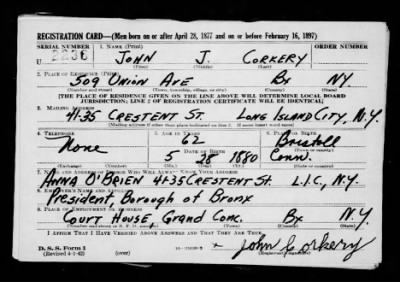 REGISTRATION CARD—(Men born on or after April 28, 1877 and on or before February 16, 1897)
SERIAL NUMBER 1. NAME (Print) ORDER NUMBER
U 2236 JOHN J. CORKERY
(First) (Middle) (Last)
2. PLACE OF RESIDENCE (Print)
509 UNION AVE Bx NY.
(Number and street) (Town, township, village, or city) (County) (State)
[THE PLACE OF RESIDENCE GIVEN ON THE LINE ABOVE WILL DETERMINE LOCAL BOARD
JURISDICTION; LINE 2 OF REGISTRATION CERTIFICATE WILL BE IDENTICAL]
3. MAILING ADDRESS
41-35 CRESTENT ST. LONG ISLAND CITY, N.Y.
[Mailing address if other than place indicated on line 2. If same insert word same]
4. TELEPHONE 5. AGE IN YEARS 6. PLACE OF BIRTH
None 62 Bristoll
DATE OF BIRTH
5 28 1880 Conn.
(Exchange) (Number) (Mo.) (Day) (Yr.) (State or country)
7. NAME AND ADDRESS OF PERSON WHO WILL ALWAYS KNOW YOUR ADDRESS
ANNA O'BRIEN 41-35 CRESTENT ST. L.I.C., N.Y.
8. EMPLOYER'S NAME AND ADDRESS
President, Borough of Bronx
9. PLACE OF EMPLOYMENT OR BUSINESS
Court House, Grand Conc. Bx N.Y.
(Number and street or R. F. D. number) (Town) (County) (State)
I AFFIRM THAT I HAVE VERIFIED ABOVE ANSWERS AND THAT THEY ARE TRUE.
D. S. S. Form 1
(Revised 4-1-42) (over)
John Corkery